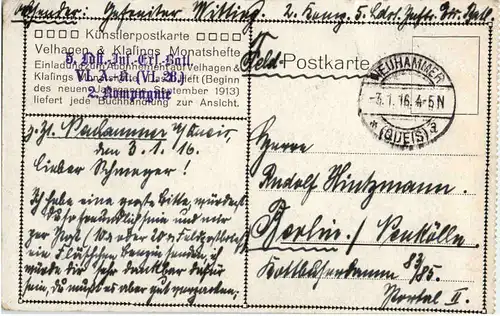 Absender: Gefreiter Wittig 2. Komp. 5. Ldst. Inftr. Ers. Batl.
Künstlerpostkarte
Velhagen & Klasings Monatshefte
Einladung zum Abonnement auf Velhagen &
Klasings Monatshefte. Das Heft (Beginn
des neuen Jahrgangs September 1913)
liefert jede Buchhandlung zur Ansicht.
5. Ldst. Inf. Ers. Batl.
VI. A.-K. (VI. 28.)
2. Kompagnie
Feld- Postkarte
NEUHAMMER
-4.1.16.4-5N
* (QUEIS) *
z. Zt. Neuhammer a/Queis,
den 3. 1. 16.
Lieber Schwager!
Ich habe eine große Bitte, würdest
Du so freundlich sein und mir
per Post
ein Fläschchen Benzin senden, ich
würde Dir sehr dankbar dafür
sein, Du mußt es aber gut verpacken,
Herrn
Rudolf Hintzmann.
Berlin / Neukölln.
Kottbuserdamm 83/85.
Portal II.